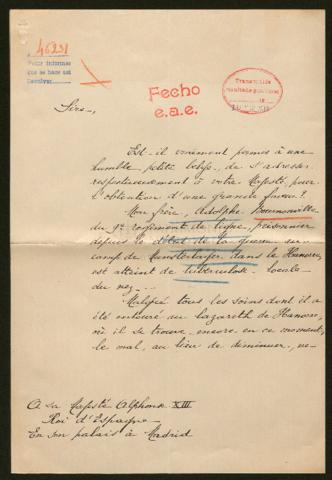 46231
Petit informes
que se hace est
Fecho
e.a.e.
Sire,
Est-il vraiment permis à une
humble petite belge, de s'adresser
respectueusement à votre Majesté, pour
l'obtention d'une grande faveur?
Mon frère, Adolphe Bournonville
du 9e régiment de ligne, prisonnier
depuis le début de la guerre au
camp de Munsterlager dans le Hanovre,
est atteint de tuberculose locale
du nez.
Malgré tous les soins dont il a
été entouré au lazareth de Hanovre,
où il se trouve encore en ce moment,
le mal, au lieu de diminuer, ne
A sa Majesté Alphonse XIII
Roi d'Espagne
En son palais à Madrid